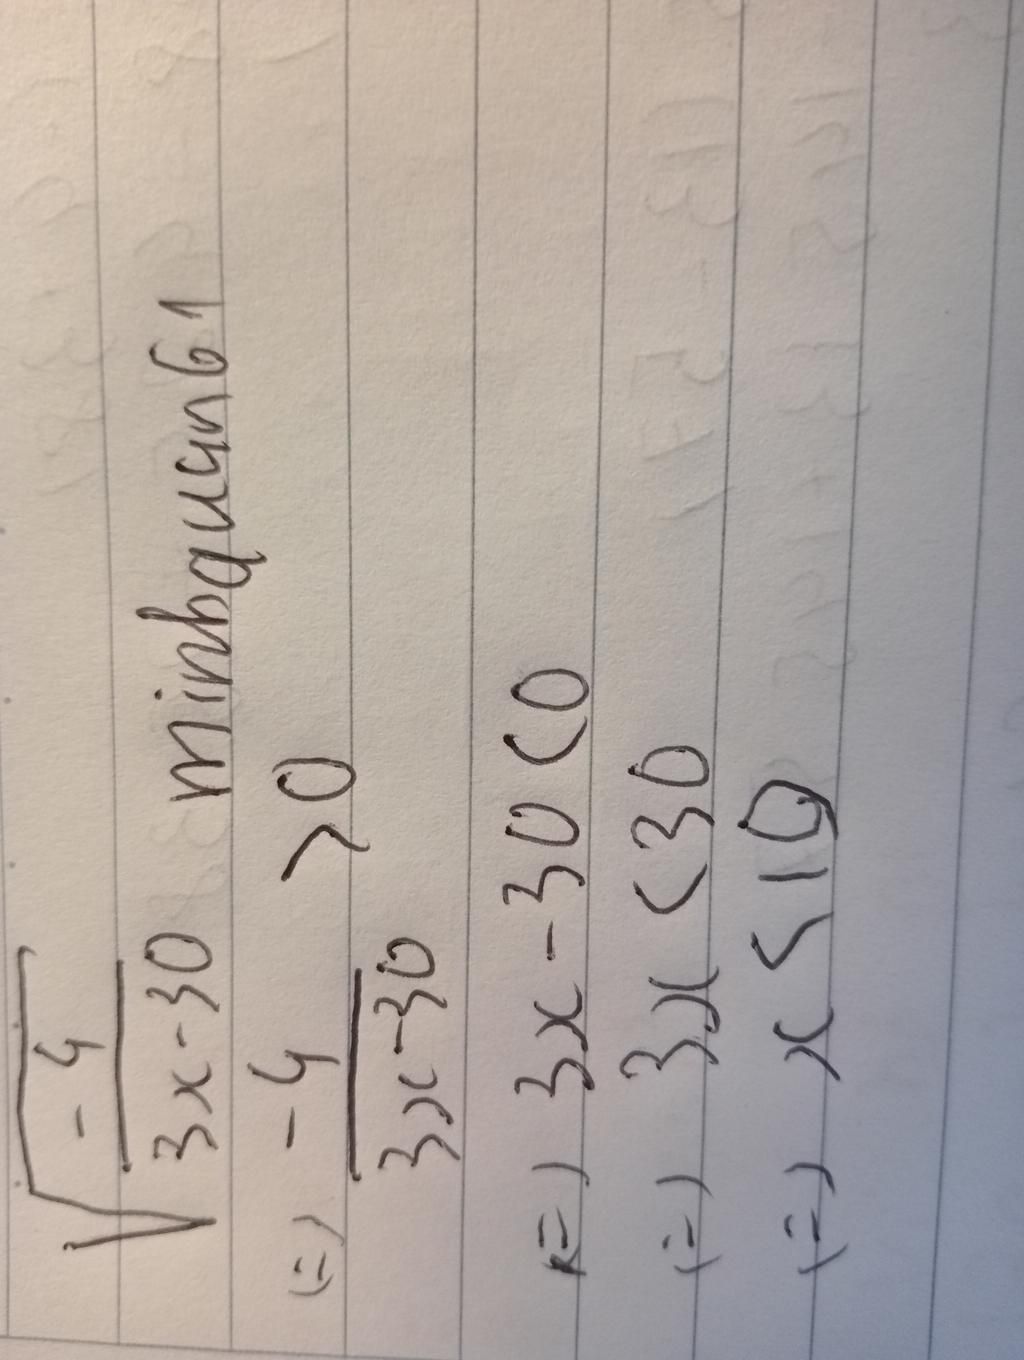 √(-4/(3x-30))
minhquan61
(=) -4/(3x-30) >0
(=) 3x-30<0
(=) 3x<30
(=) x<10